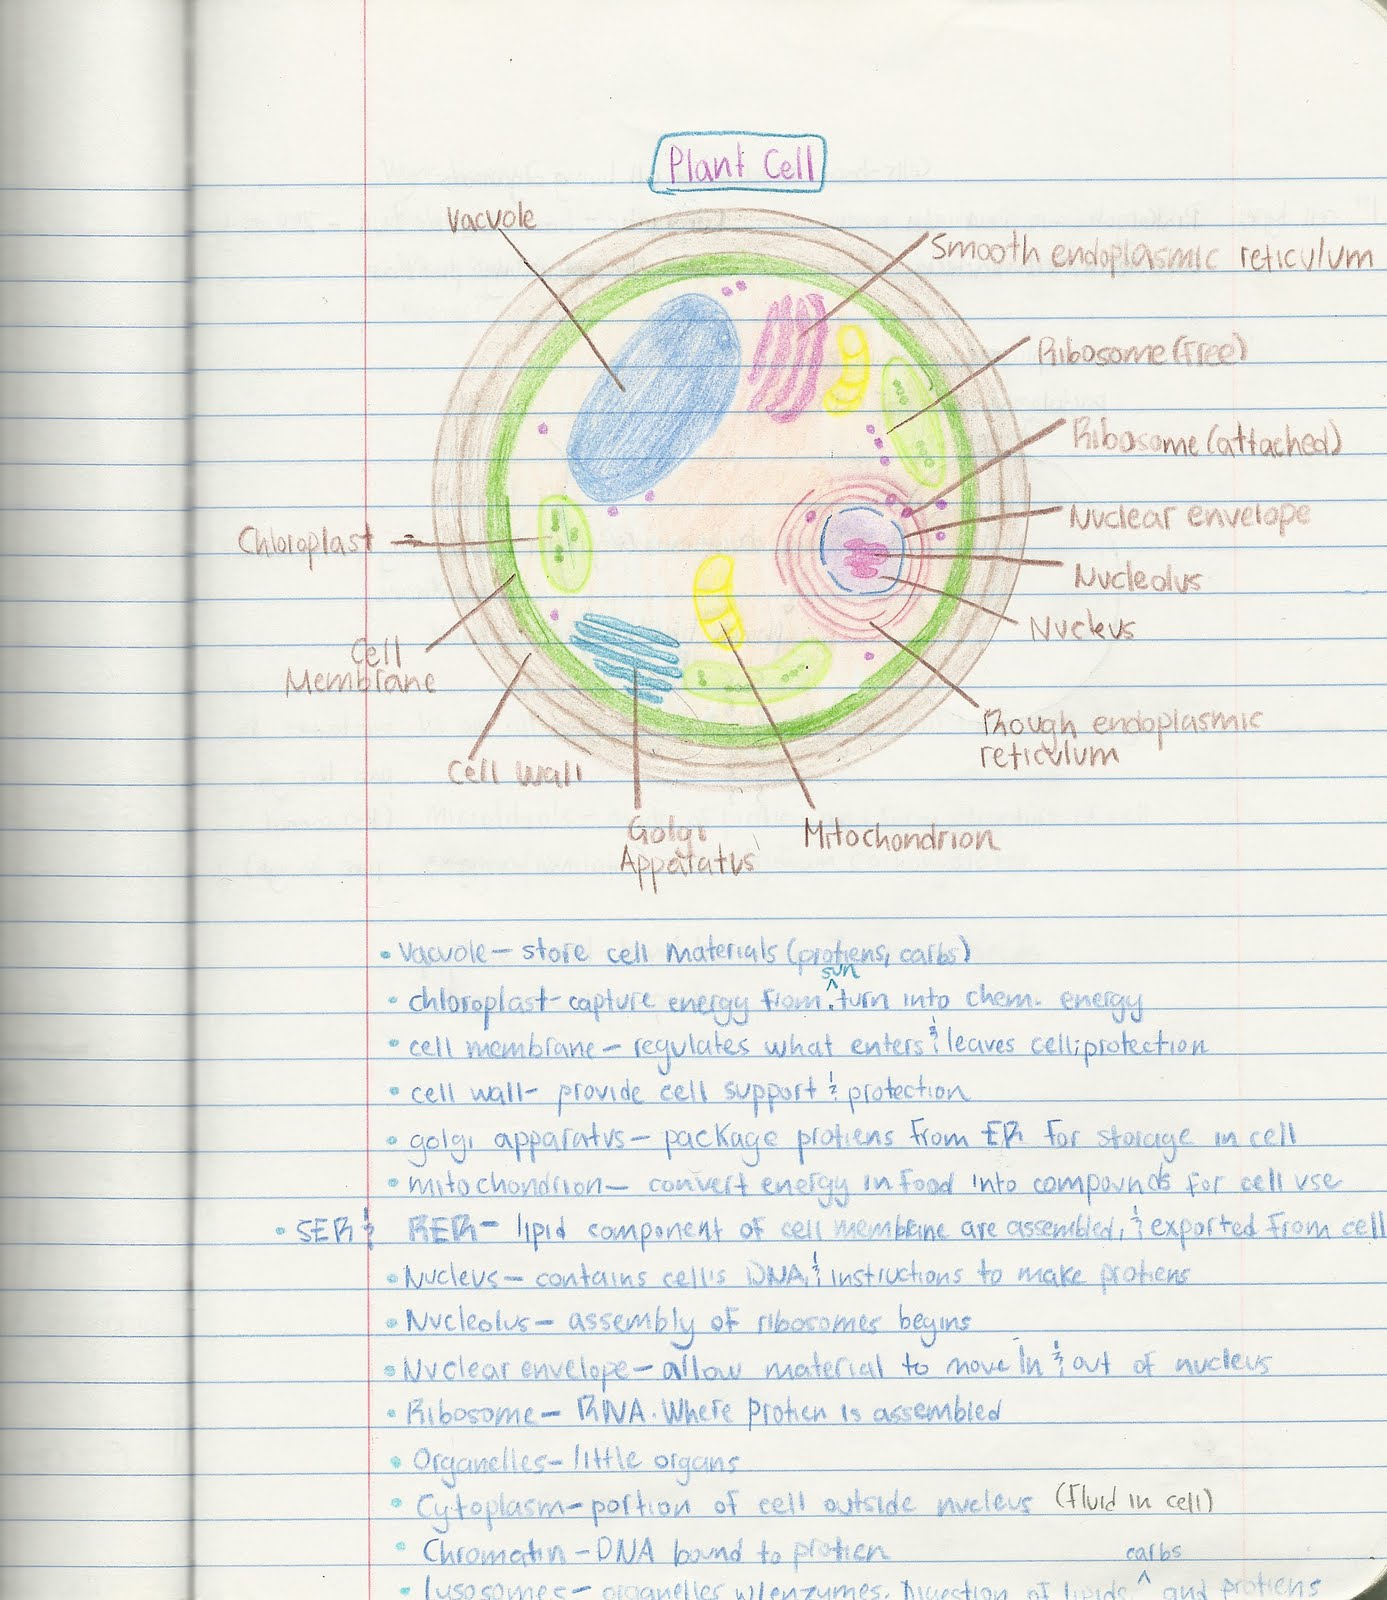 Plant Cell
Vacuole
Smooth endoplasmic reticulum
Ribosome (free)
Ribosome (attached)
Nuclear envelope
Chloroplast
Nucleolus
Nucleus
Cell
Membrane
Rough endoplasmic
reticulum
Cell Wall
Golgi
Apparatus
Mitochondrion
• Vacuole – store cell materials (protiens, carbs)
sun
• chloroplast - capture energy from ^ . turn into chem. energy
• cell membrane – regulates what enters & leaves cell; protection
• cell wall - provide cell support & protection
• golgi apparatus – package protiens from ER for storage in cell
• mitochondrion – convert energy in food into compounds for cell use
• SER & RER – lipid component of cell membrane are assembled, & exported from cell
• Nucleus – contains cell's DNA, & instructions to make protiens
• Nucleolus – assembly of ribosomes begins
• Nuclear envelope – allow material to move in & out of nucleus
• Ribosome – RNA. Where protien is assembled
• Organelles – little organs
• Cytoplasm – portion of cell outside nucleus (fluid in cell)
• Chromatin – DNA bound to protien
carbs
• lysosomes – organelles w/enzymes. Digestion of lipids, ^ and protiens